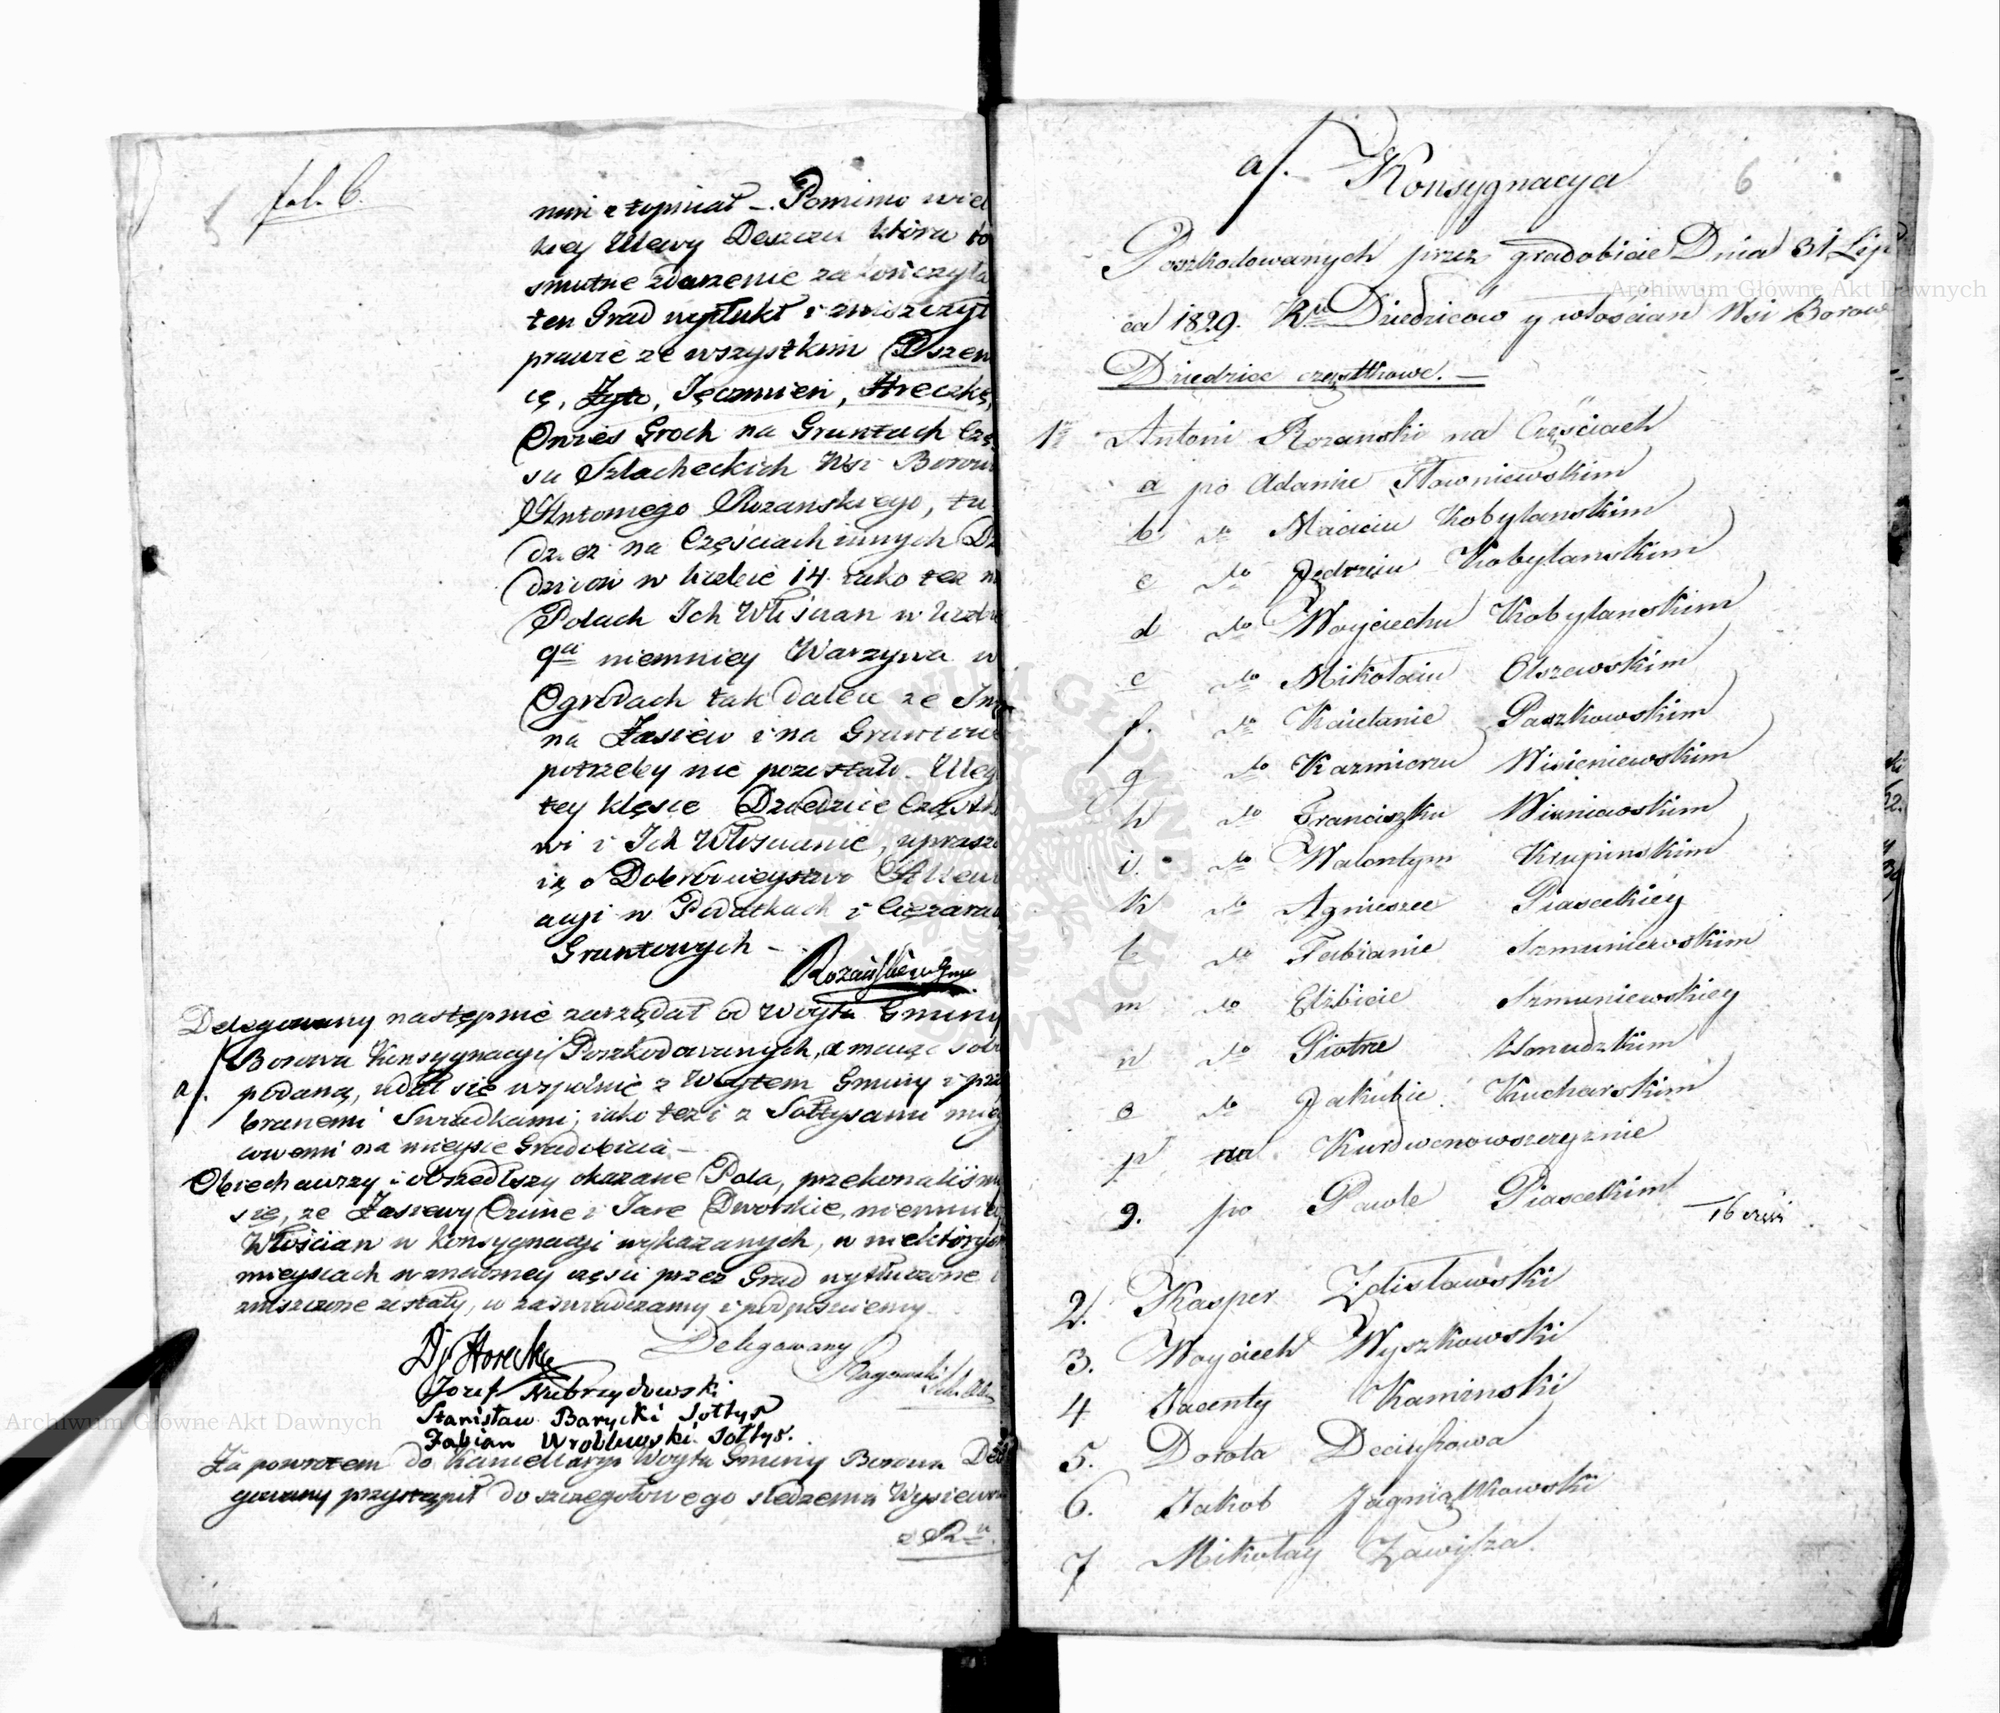 fol. 6.
nini stopniał -. Pomimo wiel
kiey Ulewy Deszczu która to
smutne zdarzenie zakończyła
ten Grad wytłukł i zniszczył
prawie ze wszystkim Pszen
cę, Żyto, Jęczmień, Hreczkę,
Owies Groch na Gruntach Czę
su Szlacheckich Wsi Borow
Antoniego Rozanskiego, tu
dzież na Częściach innych Dz
dziców w liczbie 14. iako też n
Polach Ich Włościan w liczbie
9ciu niemniey Warzywa w
Ogrodach tak dalece że In
na Zasiew i na Gruntowe
potrzeby nie pozostało. Uleg
tey klęsce Dziedzice Cząstk
wi i Ich Włościanie, uprasza
ią o Dobrodzieystwo Allewi
acyi w Podatkach i Ciężarach
Gruntowych -
Rozański w Gmy
Delegowany następnie zarządał od Woyta Gminy
Borowa Konsygnacyi Poszkodowanych, a maiąc sobie
a/. podaną, udał się wspólnie z Woytem Gminy i przy
branemi Swiadkami, iako też i z Sołtysami miey
scowemi na mieysce Gradobicia -
Obiechawszy i obszedłszy okazane Pola, przekonaliśmy
się, że Zasiewy Ozime i Jare Dworskie, niemniey
Włościan w Konsygnacyi wykazanych, w niektórych
mieyscach w znaczney części przez Grad wytłuczone i
zniszczone zostały, co zaświadczamy i podpisuiemy.
Delegowany
Józef Nebrzydowski
Stanisław Barycki Sołtys
Fabian Wroblewski Sołtys.
Za powrotem do Kancellaryi Woyta Gminy Borowa Del
gowany przystąpił do szczegółowego śledzenia Wysiewu
a/. Konsygnacya
6
Poszkodowanych przez gradobicie Dnia 31 Lip
ca 1829. Rku Dziedziców y włościan Wsi Borow
Dziedzice cząstkowe. -
1mo Antoni Rozanski na Częściach
a po Adamie Tłowniewskim
b do Macieiu Kobylanskim
c do Jędrzeiu Kobylanskim
d do Woyciechu Kobylanskim
e do Mikołaiu Olszewskim
f. do Kaietanie Paszkowskim
g do Kazmierzu Wisieniewskim
h do Franciszku Wisniewskim
i. do Walentym Krupinskim
k do Agnieszce Piaseckiey
l do Fabianie Szmuniewskim
m do Elzbiecie Szmuniewskiey
n do Piotrze Zmudzkim
o do Jakubie Kucharskim
p na Kurdwonowszczyznie
q. po Pawle Piaseckim -16 części
2. Kasper Zdisławski
3. Woyciech Wyszkowski
4 Jacenty Kaminski
5. Dorota Deciusowa
6. Jakob Jagniątkowski
7 Mikołay Zawisza.
Archiwum Główne Akt Dawnych
Archiwum Główne Akt Dawnych